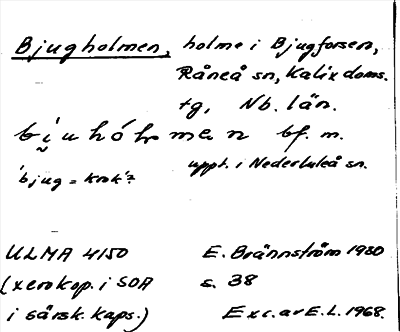 Bjugholmen, holme i Bjugforsen,
Råneå sn, Kalix doms.
tg, Nb. län.
bi̯uhólmæn bf. m.
'bjug = krok'? uppt. i Nederluleå sn.
ULMA 4150 E. Brännström 1930
(xerokop. i SOA s. 38
i särsk. kaps.) Exc. av E. L. 1968.